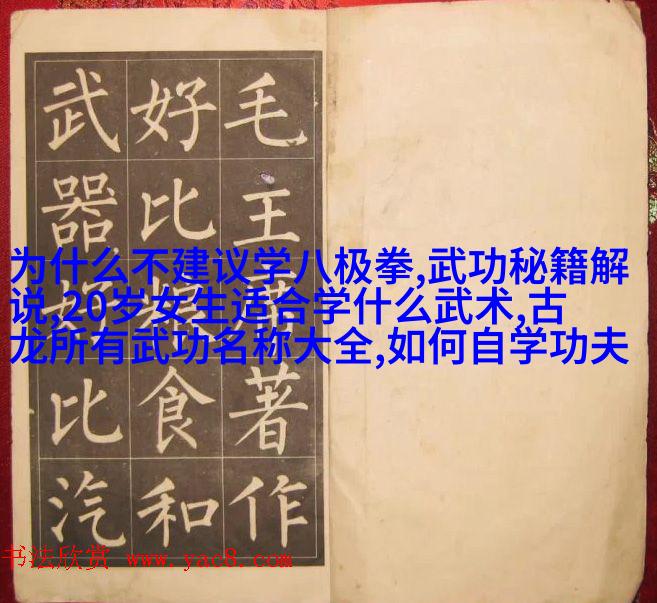 毛主席著作
好比粮食和
武器好比汽
为什么不建议学八极拳,武功秘籍解
说,20岁女生适合学什么武术,古
龙所有武功名称大全,如何自学功夫
书法欣赏 www.yac8.com